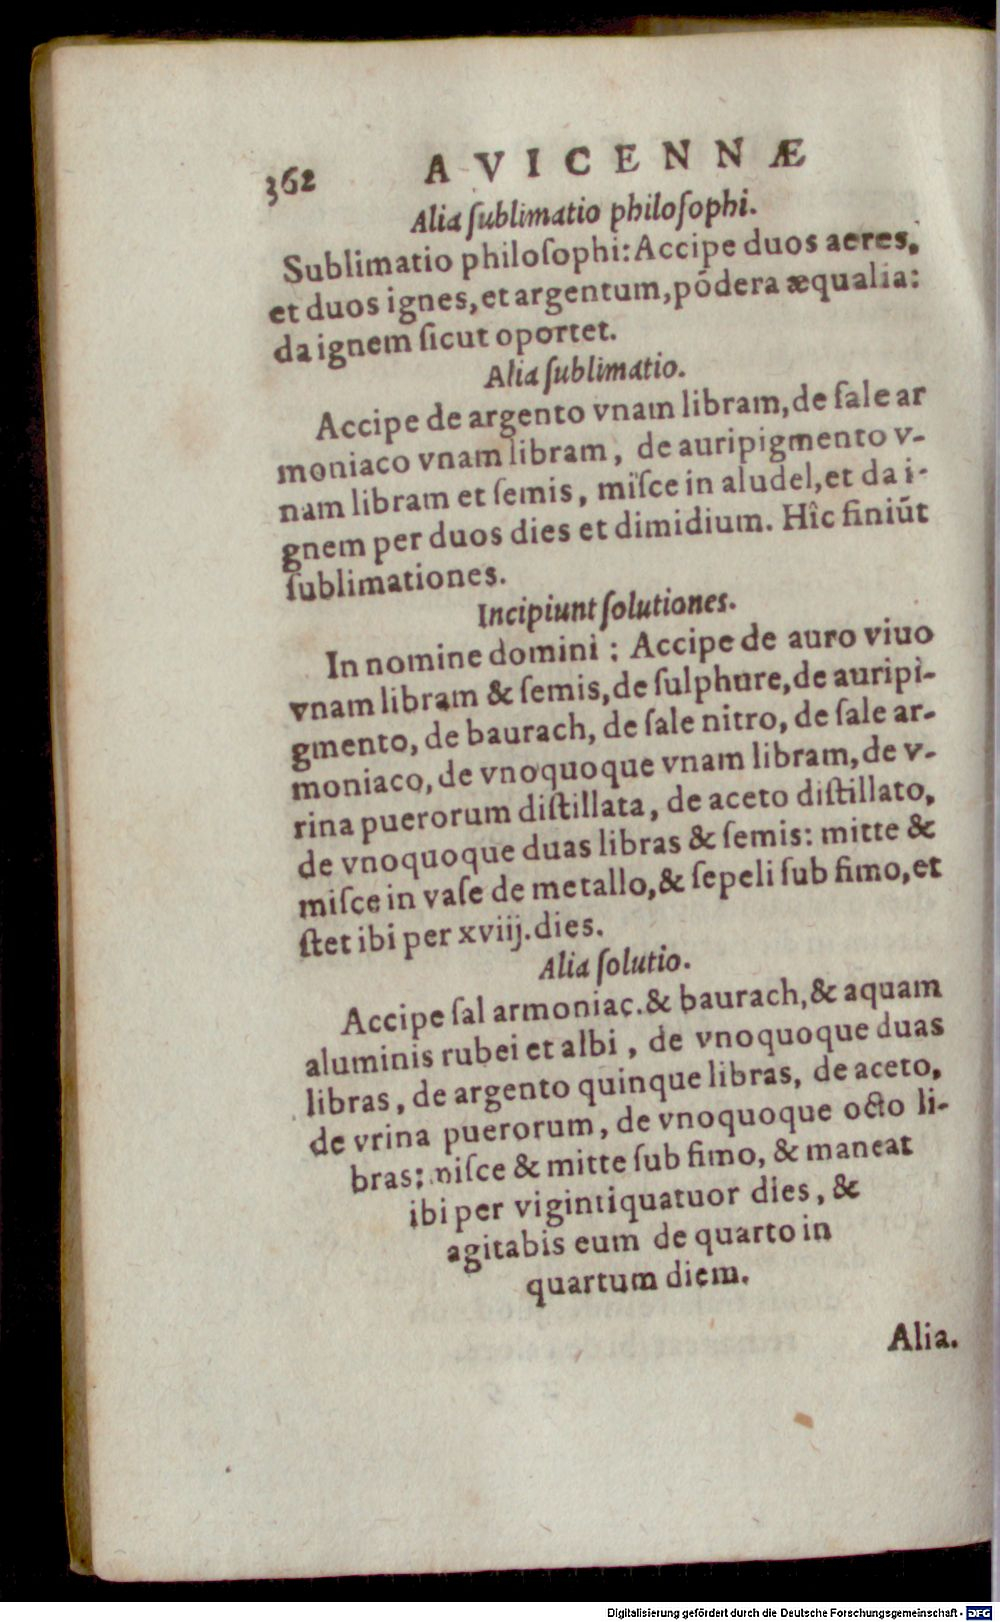 362 AVICENNÆ
Alia ſublimatio philoſophi.
Sublimatio philoſophi: Accipe duos aeres,
et duos ignes, et argentum, põdera æqualia:
da ignem ſicut oportet.
Alia ſublimatio.
Accipe de argento vnam libram, de ſale ar
moniaco vnam libram, de auripigmento v-
nam libram et ſemis, miſce in aludel, et da i-
gnem per duos dies et dimidium. Hîc finiũt
ſublimationes.
Incipiunt ſolutiones.
In nomine domini: Accipe de auro viuo
vnam libram & ſemis, de ſulphure, de auripi-
gmento, de baurach, de ſale nitro, de ſale ar-
moniaco, de vnoquoque vnam libram, de v-
rina puerorum diſtillata, de aceto diſtillato,
de vnoquoque duas libras & ſemis: mitte &
miſce in vaſe de metallo, & ſepeli ſub fimo, et
ſtet ibi per xviij. dies.
Alia ſolutio.
Accipe ſal armoniac. & baurach, & aquam
aluminis rubei et albi, de vnoquoque duas
libras, de argento quinque libras, de aceto,
de vrina puerorum, de vnoquoque octo li-
bras: miſce & mitte ſub fimo, & maneat
ibi per vigintiquatuor dies, &
agitabis eum de quarto in
quartum diem.
Alia.
Digitalisierung gefördert durch die Deutsche Forschungsgemeinschaft - DFG